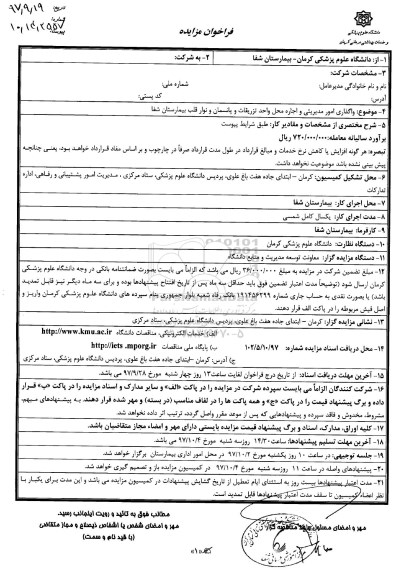 دانشگاه علوم پزشکی
و خدمات بهداشتی درمانی کرمان
۹۷/۹/۱۹
فراخوان مزایده
۱- از: دانشگاه علوم پزشکی کرمان- بیمارستان شفا
۲- به شرکت:
۳- مشخصات شرکت:
نام و نام خانوادگی مدیرعامل:
شماره ملی:
آدرس:
کد پستی:
۴- موضوع: واگذاری امور مدیریتی و اجاره محل واحد تزریقات و پانسمان و نوار قلب بیمارستان شفا
۵- شرح مختصری از مشخصات و مقادیر کار: طبق شرایط پیوست
برآورد سالیانه معامله: ۷۲۰/۰۰۰/۰۰۰ ریال
تبصره: هر گونه افزایش یا کاهش نرخ خدمات و مبالغ قرارداد در طول مدت قرارداد صرفاً در چارچوب و بر اساس مفاد قرارداد خواهد بود، یعنی چنانچه
پیش بینی نشده باشد موضوعیت نخواهد داشت.
۶- محل تشکیل کمیسیون: کرمان – ابتدای جاده هفت باغ علوی، پردیس دانشگاه علوم پزشکی، ستاد مرکزی ، مدیریت امور پشتیبانی و رفاهی، اداره
تدارکات
۷- محل اجرای کار: بیمارستان شفا
۸- مدت اجرای کار: یکسال کامل شمسی
۹- کارفرما: بیمارستان شفا
۱۰- دستگاه نظارت: دانشگاه علوم پزشکی کرمان
۱۱- دستگاه مزایده گزار: معاونت توسعه مدیریت و منابع دانشگاه
۱۲- مبلغ تضمین شرکت در مزایده به مبلغ ۳۶/۰۰۰/۰۰۰ ریال می باشد که الزاماً می بایست بصورت ضمانتنامه بانکی در وجه دانشگاه علوم پزشکی
کرمان ارسال شود (توضیحاً مدت اعتبار تضمین فوق باید حداقل سه ماه پس از تاریخ افتتاح پیشنهادها بوده و برای سه ماه دیگر نیز قابل تمدید
باشد) یا بصورت نقدی به حساب جاری شماره ۱۱۱۴۵۶۲۹۹ بانک رفاه شعبه بلوار جمهوری بنام سپرده های دانشگاه علوم پزشکی کرمان واریز و
اصل فیش مربوطه را در پاکت الف قرار دهند.
۱۳- نشانی مزایده گزار: کرمان – ابتدای جاده هفت باغ علوی، پردیس دانشگاه علوم پزشکی، ستاد مرکزی
۱۴- محل دریافت اسناد مزایده شماره: ۱۰۲/۵/۱۰/۹۷
الف) خدمات الکترونیکی، مناقصات دانشگاه http://www.kmu.ac.ir
ب) پایگاه ملی مناقصات http://iets.mporg.ir
ج) آدرس: کرمان –ابتدای جاده هفت باغ علوی، پردیس دانشگاه علوم پزشکی، ستاد مرکزی
۱۵- آخرین مهلت دریافت اسناد: از تاریخ درج فراخوان لغایت ساعت۱۳ روز چهار شنبه مورخ ۹۷/۹/۲۸ می باشد.
۱۶- شرکت کنندگان الزاماً می بایست سپرده شرکت در مزایده را در پاکت «الف» و سایر مدارک و اسناد مزایده را در پاکت «ب» قرار
داده و برگ پیشنهاد قیمت را در پاکت «ج» و همه پاکت ها را در لفاف مناسب (در بسته) و مهر شده قرار دهند. به پیشنهادهای مبهم،
مشروط، مخدوش و فاقد سپرده و پیشنهادهایی که پس از موعد مقرر واصل گردد، ترتیب اثر داده نخواهد شد.
۱۷- کلیه اوراق، مدارک، اسناد و برگ پیشنهاد قیمت مزایده بایستی دارای مهر و امضاء مجاز متقاضیان باشد.
۱۸- آخرین مهلت تسلیم پیشنهادها: ساعت ۱۴/۳۰ روزسه شنبه مورخ ۹۷/۱۰/۴ می باشد.
۱۹- جلسه توجیهی: در ساعت ۱۰ روز یکشنبه مورخ ۹۷/۱۰/۲ در محل امور اداری بیمارستان برگزار خواهد شد.
۲۰- پیشنهادهای واصله در ساعت ۱۱ روز سه شنبه مورخ ۹۷/۱۰/۴ در کمیسیون مزایده باز و تصمیم گیری خواهد شد.
۲۱- مدت اعتبار پیشنهادها بیست روز به استثنای ایام تعطیل از تاریخ گشایش پیشنهادات در کمیسیون مزایده می باشد و این مدت برای یکبار با
نظر اعضاء کمیسیون تا سقف مدت اعتبار پیشنهادها قابل تمدید است.
مهر و امضای مسئول
مطالب فوق به تائید و رویت اینجانب رسید.
مهر و امضای شخص یا اشخاص ذیصلاح و مجاز متقاضی
(با قید نام و سمت)